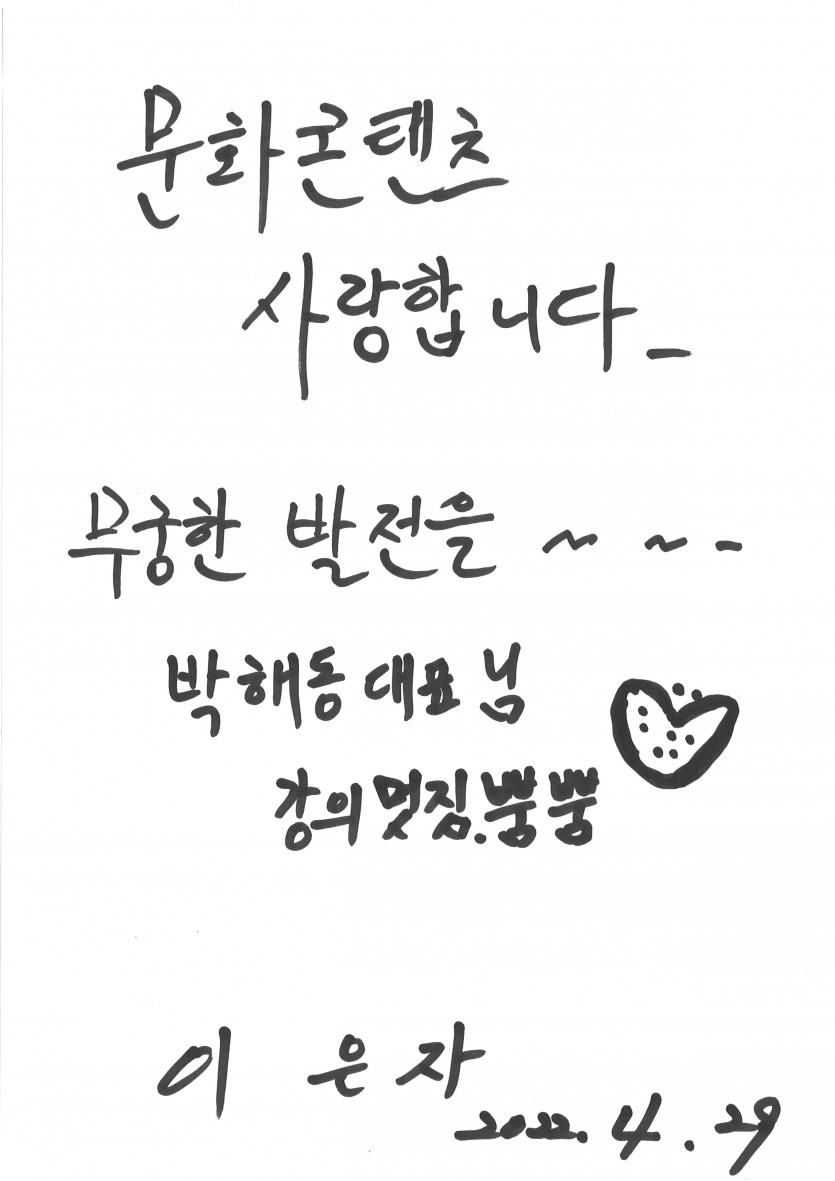 문화콘텐츠
사랑합니다_
무궁한 발전을 ~ ~ -
박해동 대표님
강의 멋짐.뿜뿜
이 은 자
2022. 4. 29